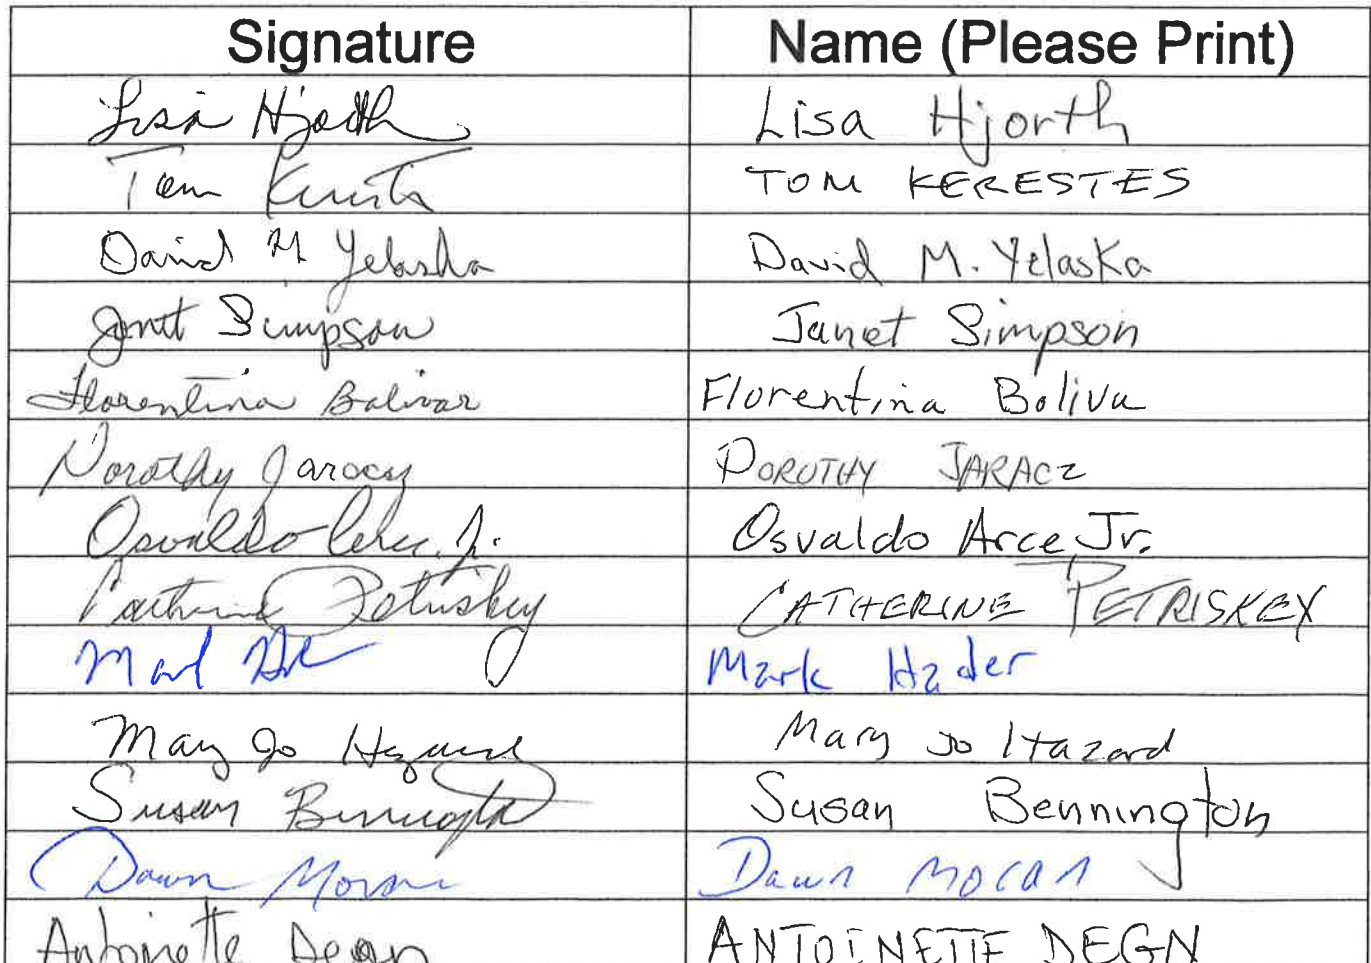 Signature Name (Please Print)
Lisa Hjorth Lisa Hjorth
Tom TOM KERESTES
David M Yelaska David M. Yelaska
Janet Simpson Janet Simpson
Florentina Bolivar Florentina Boliva
Dorothy Jaracz DOROTHY JARACZ
Osvaldo Arce Jr. Osvaldo Arce Jr.
Catherine Petriskey CATHERINE PETRISKEY
Mark Mark Hader
Mary Jo Hazard Mary Jo Hazard
Susan Bennington Susan Bennington
Dawn Moran Dawn MORAN
Antoinette Degn ANTOINETTE DEGN